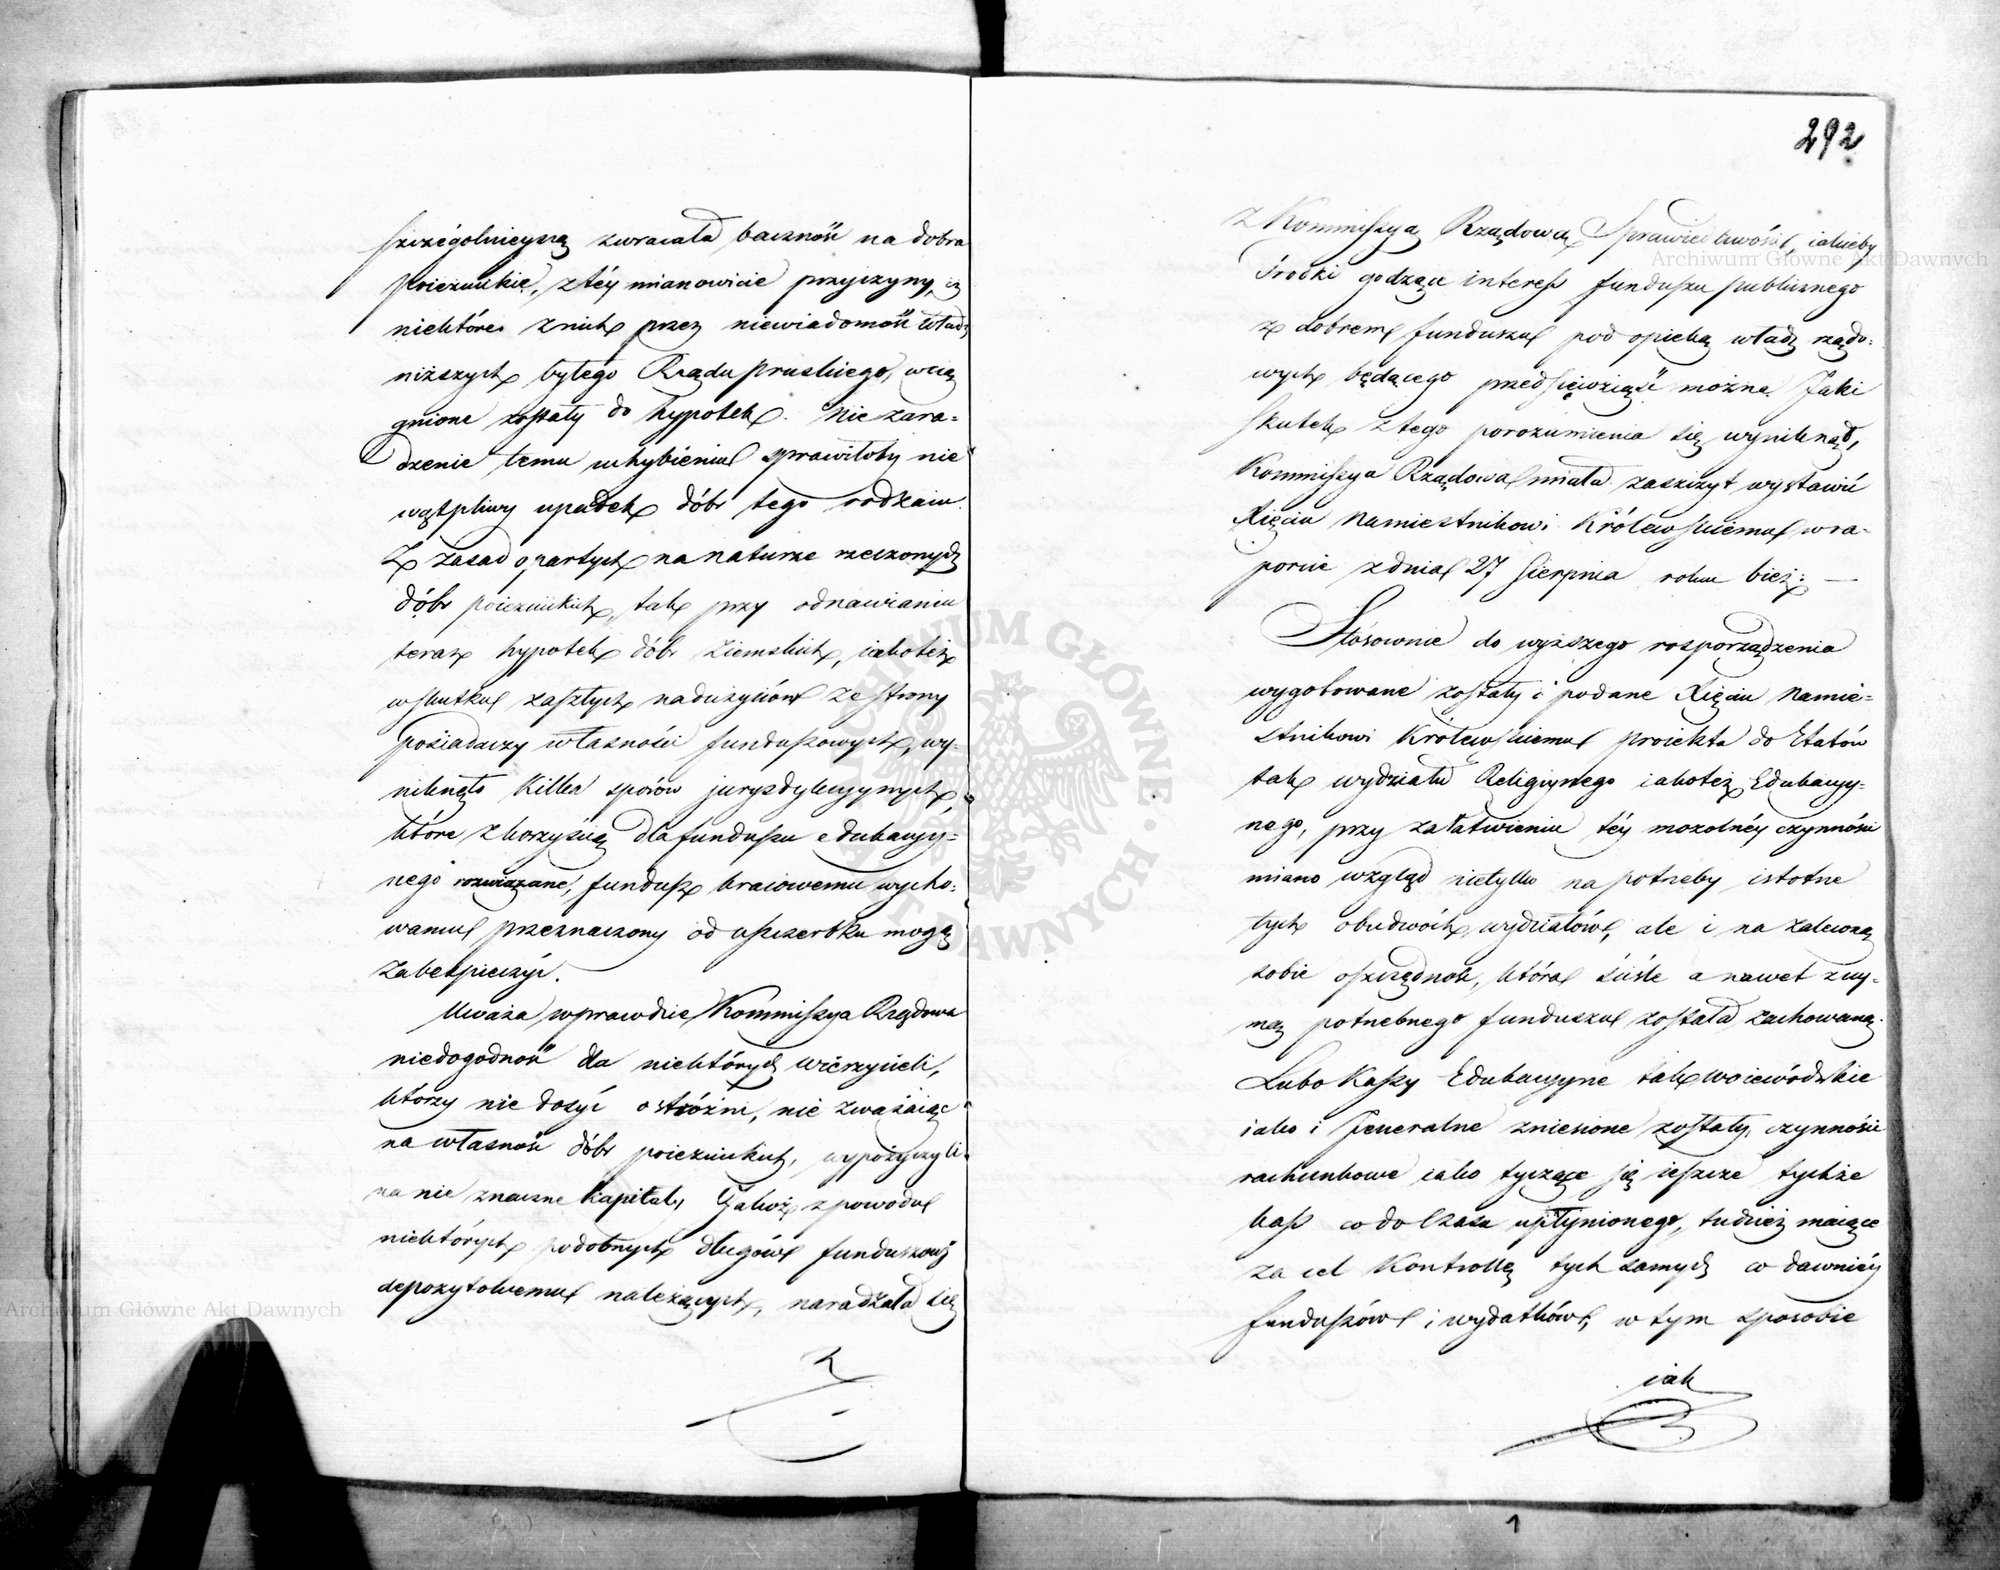 szczególnieyszą zwracała baczność na dobra
Poiezuickie, z téy mianowicie przyczyny, iż
niektóre z nich przez niewiadomość Władz
niższych byłego Rządu pruskiego, wcią
gnione zostały do hypotek. Nie zara=
dzenie temu uchybieniu sprawiłoby nie
wątpliwy upadek dóbr tego rodzaiu.
Z zasad opartych na naturze rzeczonych
dóbr poiezuickich, tak przy odnawianiu
teraz hypotek dóbr Ziemskich, iakoteż
w skutku zaszłych nadużyciów ze strony
posiadaczy własności funduszowych, wy=
niknęło kilka sporów jurysdykcyinych,
które z korzyścią dla funduszu edukacyy=
nego rozwiązane, fundusz kraiowemu wycho=
waniu przeznaczony od uszczerbku mogą
zabezpieczyć.
Uważa wprawdzie Kommissya Rządowa
niedogodność dla niektórych wierzycieli,
którzy nie dosyć ostróżni, nie zważaiąc
na własność dóbr poiezuickich, wypożyczyli
na nie znaczne kapitały Jakoż z powodu
niektórych podobnych długów funduszowi
depozytowemu należących, naradzała się
z
292
z Kommissyą Rządową Sprawiedliwości, iakieby
środki godzące interess funduszu publicznego
z dobrem funduszu pod opieką władz rządo=
wych będącego przedsięwziąść można. Jaki
skutek z tego porozumienia się wyniknął,
Kommissya Rządowa miała zaszczyt wystawić
Xięciu Namiestnikowi Królewskiemu w ra=
porcie z dnia 27 Sierpnia roku bież: —
Stosownie do wyższego rosporządzenia
wygotowane zostały i podane Xięciu Namie=
stnikowi Królewskiemu proiekta do Etatów
tak wydziału Religiynego iakoteż Edukacyy=
nego, przy załatwieniu téy mozolnéy czynności
miano wzgląd nietylko na potrzeby istotne
tych obudwóch wydziałów, ale i na zaleconą
sobie oszczędność, która ściśle a nawet z uy=
mą potrzebnego funduszu została zachowaną.
Lubo Kassy Edukacyyne tak woiewódzkie
iako i Jeneralne zniesione zostały, czynności
rachunkowe iako tyczące się ieszcze tychże
kass co do Czasu upłynionego, tudzież maiące
za cel Kontrollę tych samych co dawniéy
funduszów i wydatków, w tym sposobie
iak
1
Archiwum Główne Akt Dawnych
Archiwum Główne Akt Dawnych
ARCHIWUM GŁÓWNE AKT DAWNYCH